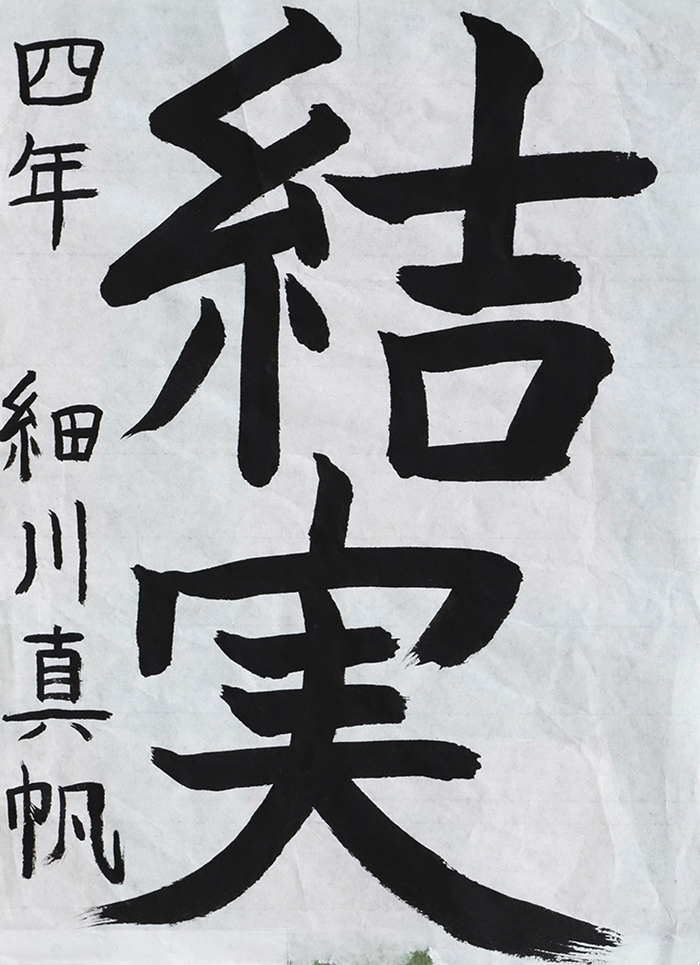 結実
四年 細川真帆